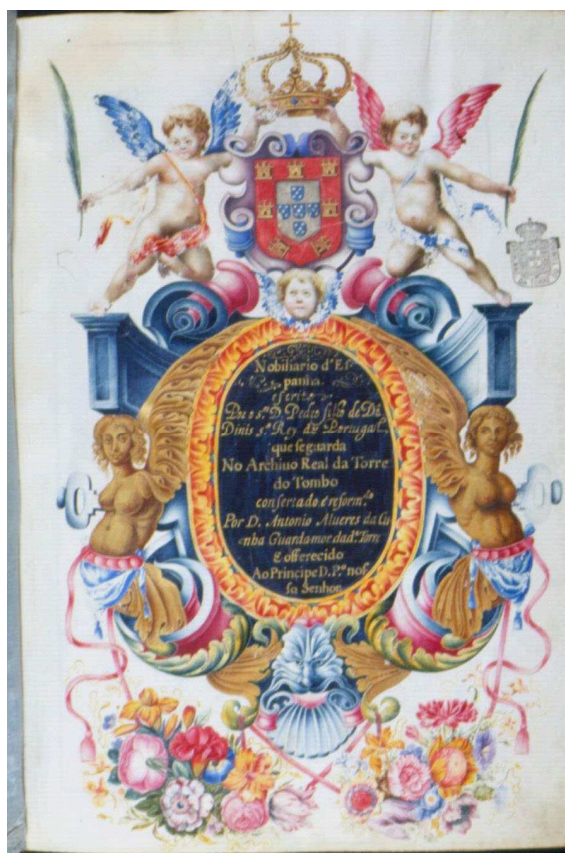 Nobiliario d'Es
panha
escrito
Por o sr. D. Pedro filho de Dõ
Dinis sr. Rey de Portugal
que se guarda
No Archiuo Real da Torre
do Tombo
consertado e reform.do
Por D. Antonio Alueres da Cu
nha Guardamor da d.ª Torre
E offerecido
Ao Principe D. P.º nos
so Senhor